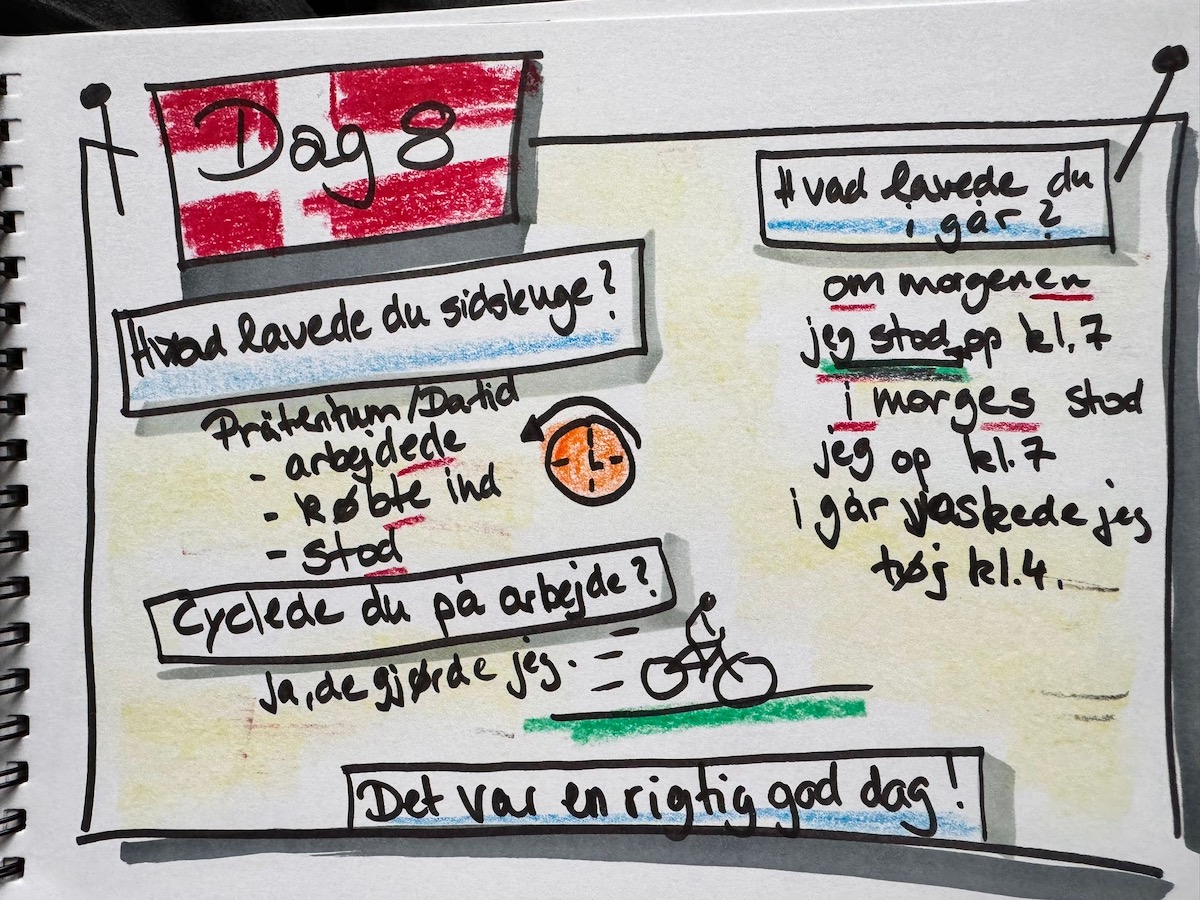 Dag 8
Hvad lavede du sidskuge?
Prätentum/Datid
- arbejdede
- købte ind
- stod
Cyclede du på arbejde?
Ja, de gjørde jeg.
Hvad lavede du
i går?
om morgenen
jeg stod op kl. 7
i morges stod
jeg op kl. 7
i går vaskede jeg
tøj kl. 4.
Det var en rigtig god dag!